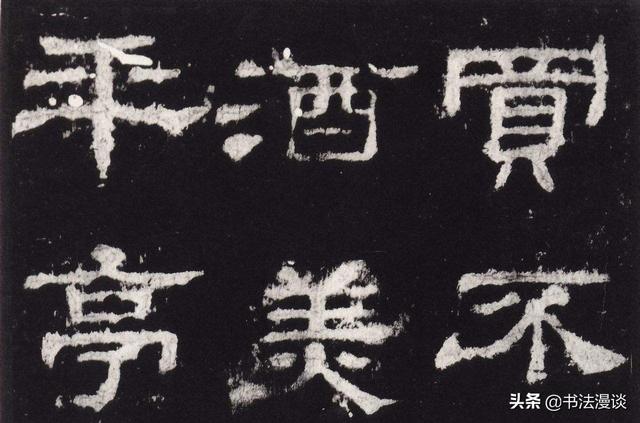 買不
酒美
平亭
头条 @书法漫谈